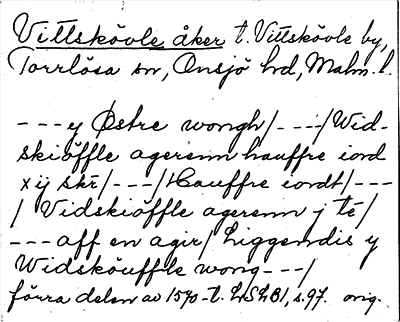 Vittskövle åker t. Vittskövle by,
Torrlösa sn, Onsjö hd, Malm. l.
---y Østre wongh/---/Wid-
skiöffle agerenn hauffre iord
xij skr/---/Hauffre iordt/---
/ Vidskiöffle agerenn j té/
---aff en agir/Liggendis y
Widsköuffle wong---/
förra delen av 1570-t. LSLB1, s.97. orig.